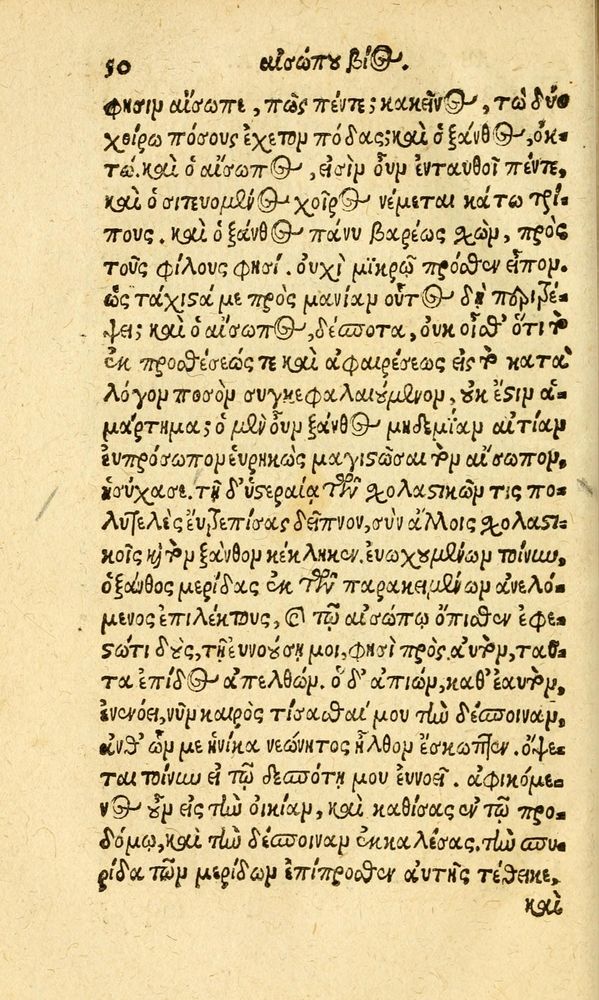 50 αἰσώπου βίος.
φησιν αἴσωπε, πῶς πέντε; κακεῖνος, τὼ δύο
χοίρω πόσους ἔχετον πόδας; καὶ ὁ ξάνθος, ὀκ-
τώ. καὶ ὁ αἴσωπος, εἰσὶν οὖν ἐνταυθοῖ πέντε,
καὶ ὁ σιτευόμενος χοῖρος νέμεται κάτω τρί-
πους. καὶ ὁ ξάνθος πάνυ βαρέως σχὼν, πρὸς
τοὺς φίλους φησί. οὐχὶ μικρῷ πρόσθεν εἶπον.
ὡς τάχιστά με πρὸς μανίαν οὗτος δὴ περιτρέ-
ψει; καὶ ὁ αἴσωπος, δέσποτα, οὐκ οἶσθ' ὅτι τὸ
ἐκ προσθέσεώς τε καὶ ἀφαιρέσεως εἰς τὸ κατὰ
λόγον ποσὸν συγκεφαλαιούμενον, οὐκ ἔστιν ἁ-
μάρτημα; ὁ μὲν οὖν ξάνθος μηδεμίαν αἰτίαν
εὐπρόσωπον εὑρηκὼς μαστιγῶσαι τὸν αἴσωπον,
ἡσύχασε. τῇ δ' ὑστεραίᾳ τῶν σχολαστικῶν τις πο-
λυτελὲς εὐτρεπίσας δεῖπνον, σὺν ἄλλοις σχολαστι-
κοῖς καὶ τὸν ξάνθον κέκληκεν. εὐωχουμένων τοίνυν,
ὁ ξάνθος μερίδας ἐκ τῶν παρακειμένων ἀνελό-
μενος ἐπιλέκτους, καὶ τῷ αἰσώπῳ ὄπισθεν ἐφε-
στῶτι δοὺς, τῇ εὐνοούσῃ μοι, φησὶ πρὸς αὐτὸν, ταῦ-
τα ἐπίδος ἀπελθών. ὁ δ' ἀπιὼν, καθ' ἑαυτὸν,
ἐνενόει, νῦν καιρὸς τίσασθαί μου τὴν δέσποιναν,
ἀνθ' ὧν με ἡνίκα νεώνητος ἦλθον ἔσκωπτεν. ὄψε-
ται τοίνυν εἰ τῷ δεσπότῃ μου εὐνοεῖ. ἀφικόμε-
νος οὖν εἰς τὴν οἰκίαν, καὶ καθίσας ἐν τῷ προ-
δόμῳ, καὶ τὴν δέσποιναν ἐκκαλέσας. τὴν σπυ-
ρίδα τῶν μερίδων ἐπίπροσθεν αὐτῆς τέθεικε,
καὶ